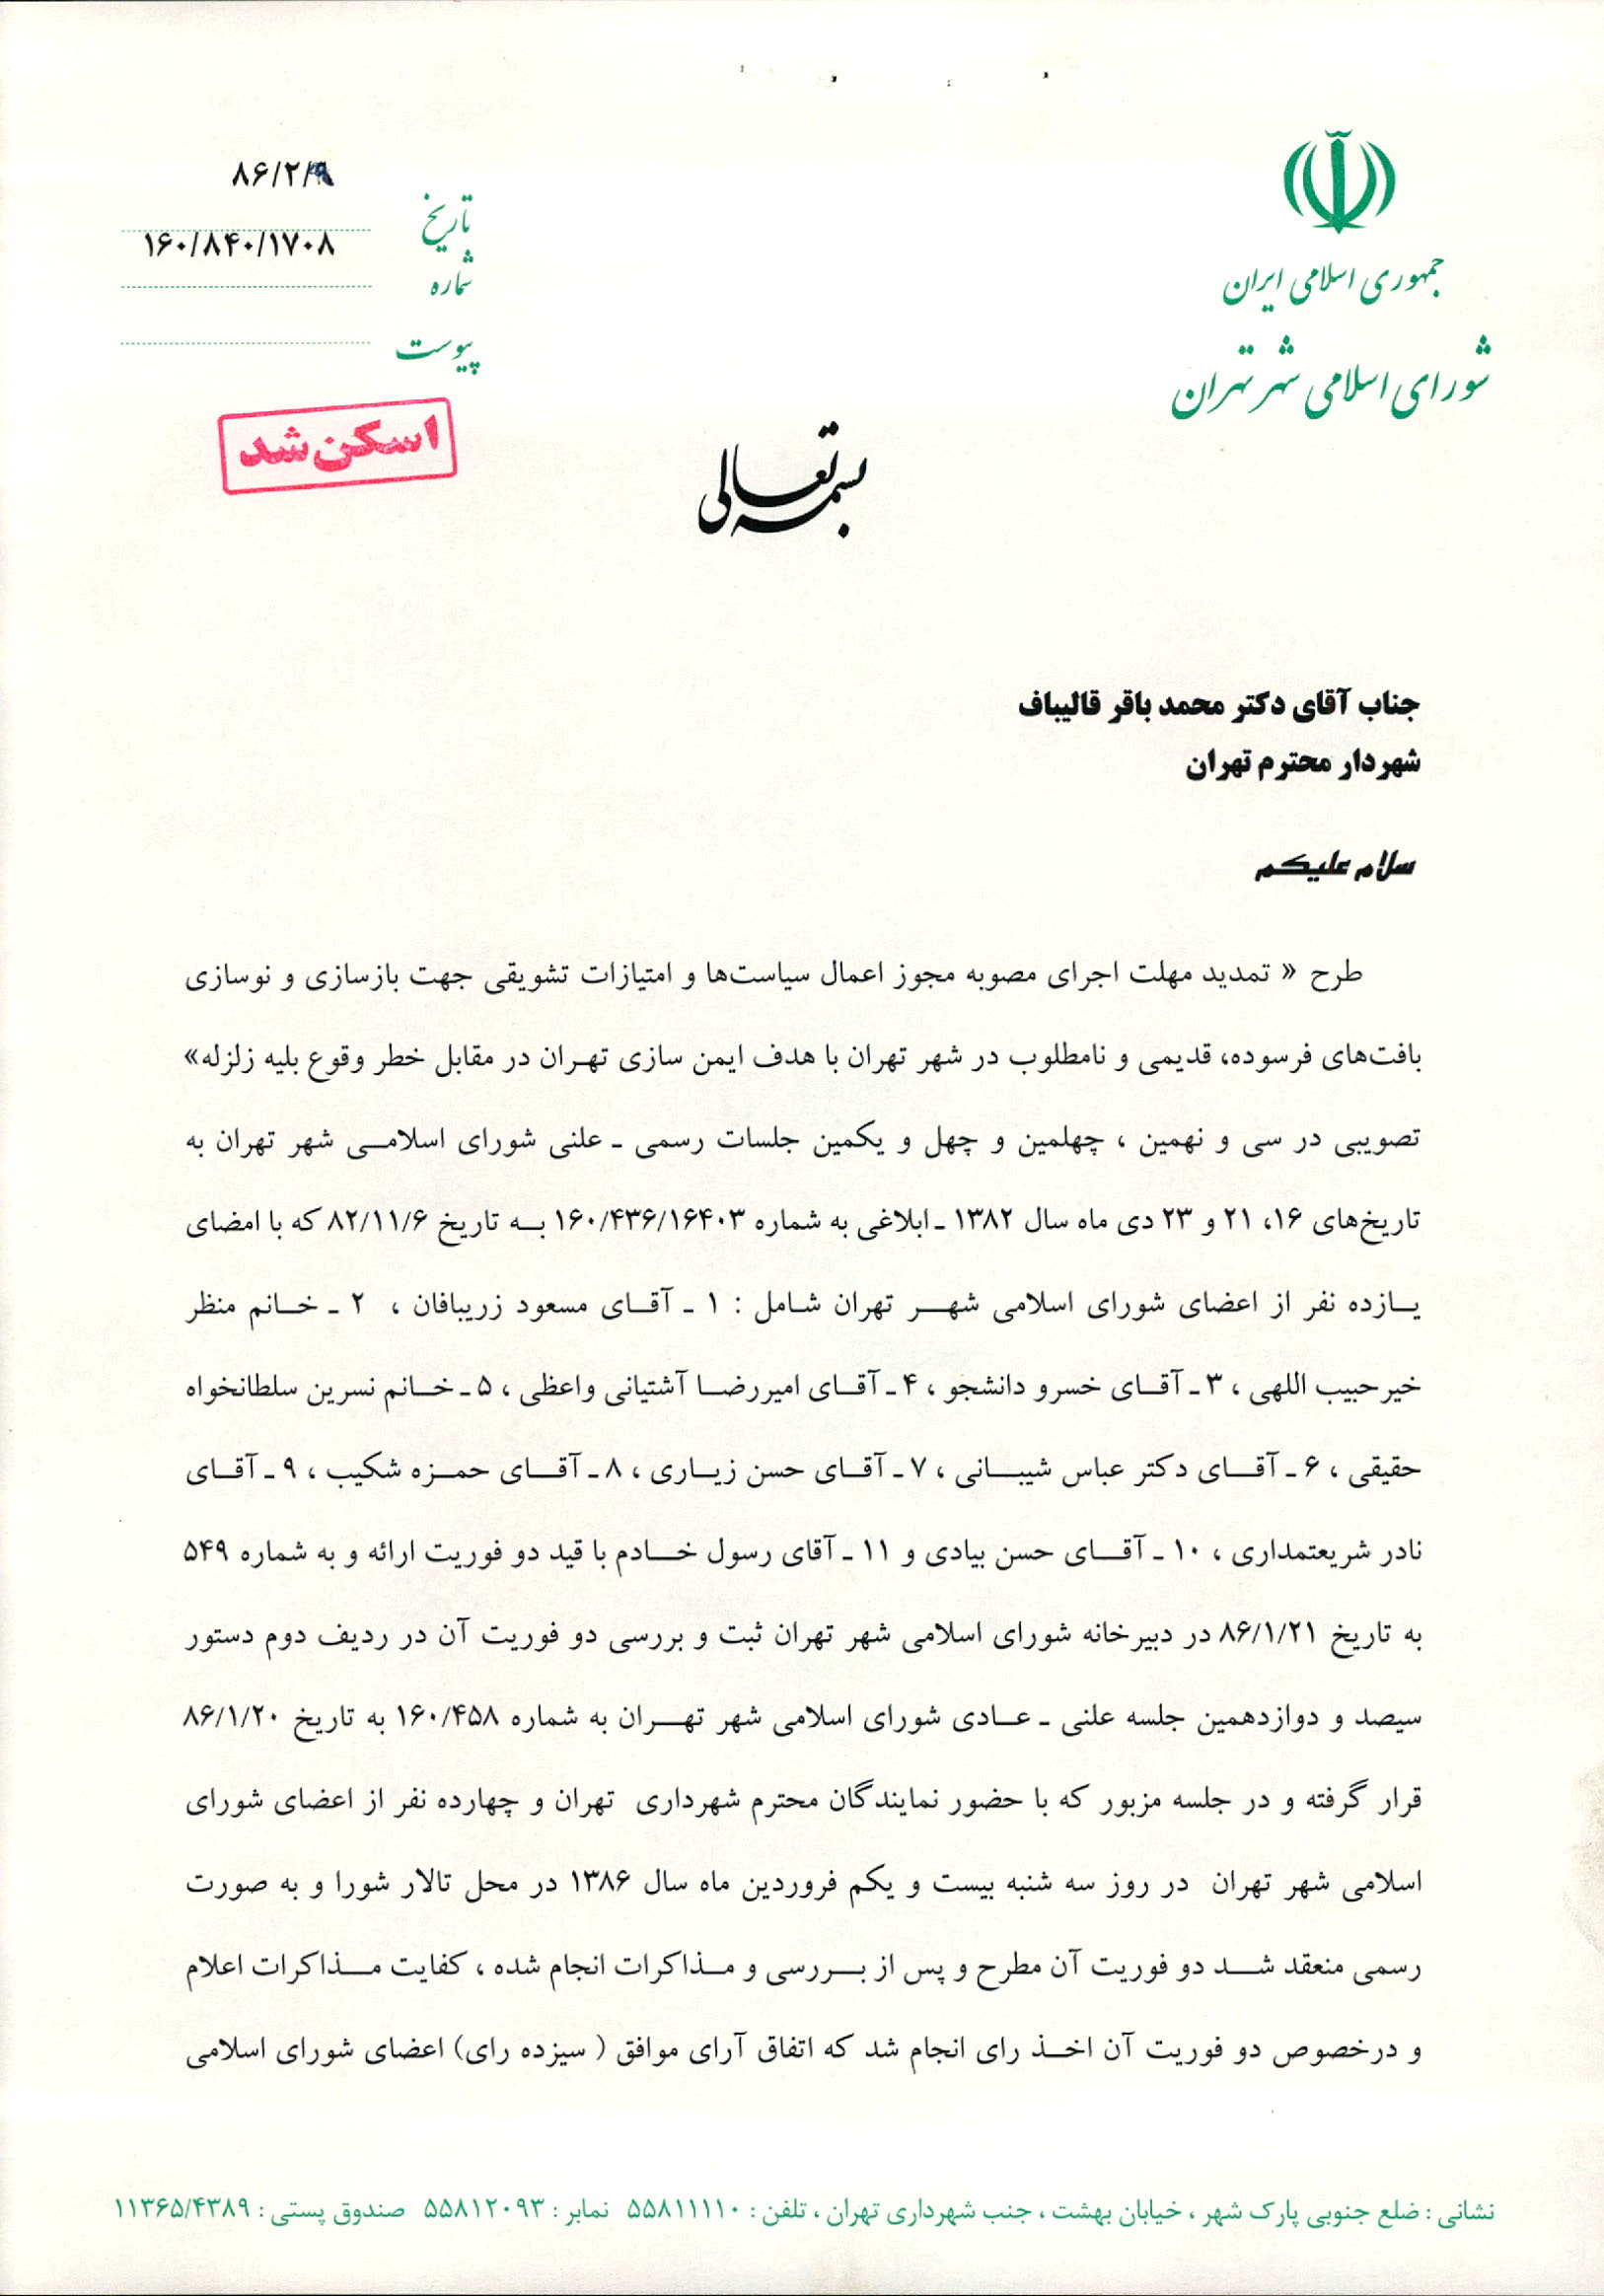 جمهوری اسلامی ایران
شورای اسلامی شهر تهران
۸۶/۲/
تاریخ
۱۶۰/۸۴۰/۱۷۰۸
شماره
پیوست
اسکن شد
بسمه تعالی
جناب آقای دکتر محمد باقر قالیباف
شهردار محترم تهران
سلام علیکم
طرح « تمدید مهلت اجرای مصوبه مجوز اعمال سیاست‌ها و امتیازات تشویقی جهت بازسازی و نوسازی
بافت‌های فرسوده، قدیمی و نامطلوب در شهر تهران با هدف ایمن سازی تهران در مقابل خطر وقوع بلیه زلزله»
تصویبی در سی و نهمین ، چهلمین و چهل و یکمین جلسات رسمی ـ علنی شورای اسلامی شهر تهران به
تاریخ‌های ۱۶، ۲۱ و ۲۳ دی ماه سال ۱۳۸۲ ـ ابلاغی به شماره ۱۶۰/۴۳۶/۱۶۴۰۳ به تاریخ ۸۲/۱۱/۶ که با امضای
یازده نفر از اعضای شورای اسلامی شهر تهران شامل : ۱ ـ آقای مسعود زریبافان ، ۲ ـ خانم منظر
خیرحبیب اللهی ، ۳ ـ آقای خسرو دانشجو ، ۴ ـ آقای امیررضا آشتیانی واعظی ، ۵ ـ خانم نسرین سلطانخواه
حقیقی ، ۶ ـ آقای دکتر عباس شیبانی ، ۷ ـ آقای حسن زیاری ، ۸ ـ آقای حمزه شکیب ، ۹ ـ آقای
نادر شریعتمداری ، ۱۰ ـ آقای حسن بیادی و ۱۱ ـ آقای رسول خادم با قید دو فوریت ارائه و به شماره ۵۴۹
به تاریخ ۸۶/۱/۲۱ در دبیرخانه شورای اسلامی شهر تهران ثبت و بررسی دو فوریت آن در ردیف دوم دستور
سیصد و دوازدهمین جلسه علنی ـ عادی شورای اسلامی شهر تهران به شماره ۱۶۰/۴۵۸ به تاریخ ۸۶/۱/۲۰
قرار گرفته و در جلسه مزبور که با حضور نمایندگان محترم شهرداری تهران و چهارده نفر از اعضای شورای
اسلامی شهر تهران در روز سه شنبه بیست و یکم فروردین ماه سال ۱۳۸۶ در محل تالار شورا و به صورت
رسمی منعقد شد دو فوریت آن مطرح و پس از بررسی و مذاکرات انجام شده ، کفایت مذاکرات اعلام
و درخصوص دو فوریت آن اخذ رای انجام شد که اتفاق آرای موافق ( سیزده رای) اعضای شورای اسلامی
نشانی : ضلع جنوبی پارک شهر ، خیابان بهشت ، جنب شهرداری تهران ، تلفن : ۵۵۸۱۱۱۱۰ نمابر : ۵۵۸۱۲۰۹۳ صندوق پستی : ۱۱۳۶۵/۴۳۸۹